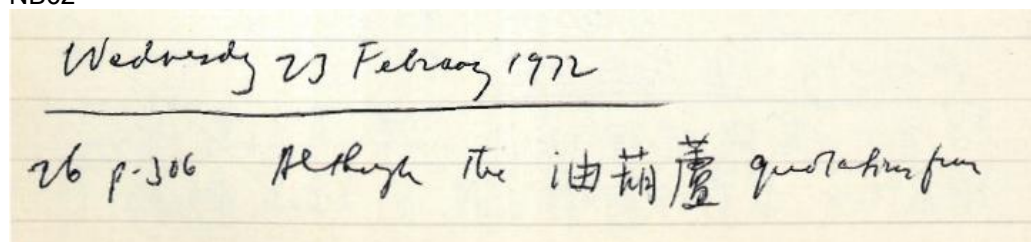 Wednesday 23 February 1972
26 p.306 Although the 油葫蘆 quotation from